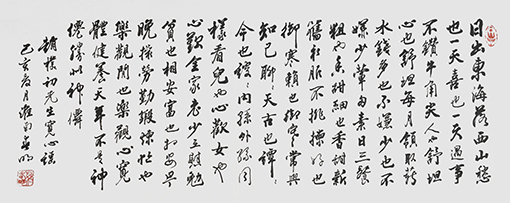 日出東海落西山愁
也一天喜也一天遇事
不鑽牛角尖人也舒坦
心也舒坦每月領取薪
水錢多也不嫌少也不
嫌少葷多素日三餐
粗也香甜細也香甜新
舊衣服不挑揀好也
御寒賴也御寒常與
知己聊聊天古也譚譚
今也譚譚內孫外孫同
樣看兒也心歡女也
心歡全家老少互慰勉
貧也相安富也相安早
晚操勞勤鍛煉忙也
樂觀閑也樂觀心寬
體健養天年不是神
僊勝似神僊
趙樸初先生寬心謠
己亥春月